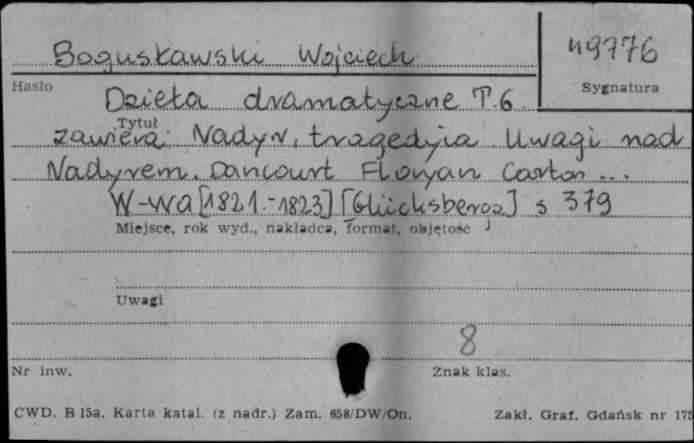 Bogusławski Wojciech
49776
Hasło
Sygnatura
Dzieła dramatyczne T. 6.
Tytuł
zawiera: Nadyr, tragedyia Uwagi nad
Nadyrem. Dancourt Floryan Carton ...
W-wa [1821.-1823] [Glücksberga] s 379
Miejsce, rok wyd., nakładca, format, objętość
Uwagi
8
Nr inw.
Znak klas.
CWD. B 15a. Karta katal. (z nadr.) Zam. 658/DW/On.
Zakł. Graf. Gdańsk nr 175